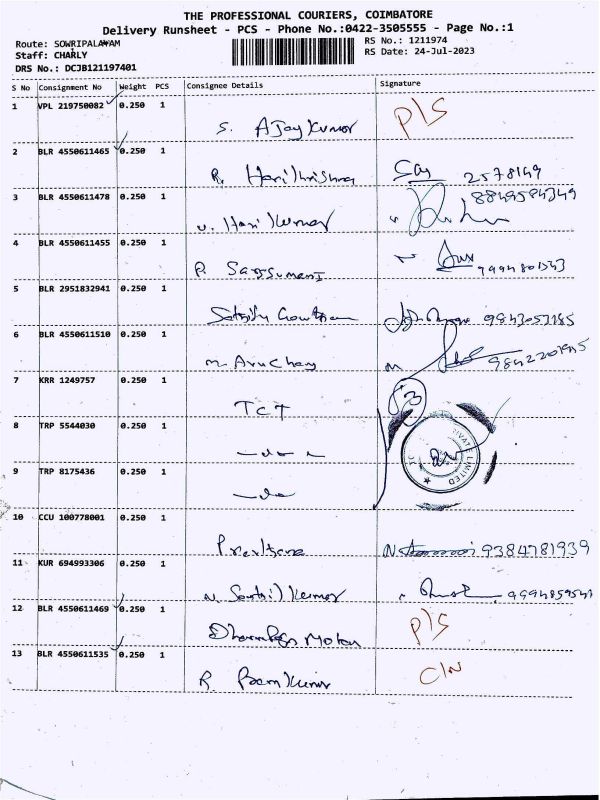 THE PROFESSIONAL COURIERS, COIMBATORE
Delivery Runsheet - PCS - Phone No.:0422-3505555 - Page No.:1
Route: SOWRIPALAYAM
RS No.: 1211974
Staff: CHARLY
RS Date: 24-Jul-2023
DRS No.: DCJB121197401
S No Consignment No Weight PCS Consignee Details Signature
1 VPL 219750082 0.250 1 S. Ajay Kumar P/S
2 BLR 4550611465 0.250 1 R. Hari Krishna 2578149
3 BLR 4550611478 0.250 1 v. Hari Kumar 8849584349
4 BLR 4550611455 0.250 1 P.
5 BLR 2951832941 0.250 1
6 BLR 4550611510 0.250 1 M.
7 KRR 1249757 0.250 1 TCT 3
8 TRP 5544030 0.250 1 -do-
9 TRP 8175436 0.250 1 -do-
VATE LIMITED
10 CCU 100778001 0.250 1 9384781939
11 KUR 694993306 0.250 1 N. Senthil Kumar
12 BLR 4550611469 0.250 1 Mohan P/S
13 BLR 4550611535 0.250 1 R. Ram Kumar C/N